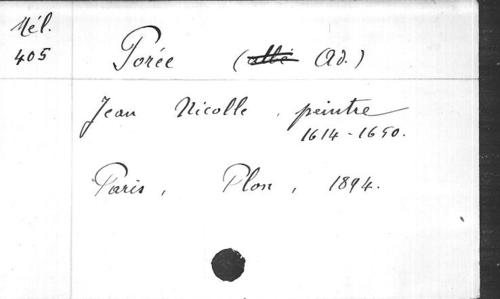 Mél.
405
Porée (abbé Ad.)
Jean Nicolle, peintre
1614-1650.
Paris, Plon, 1894.